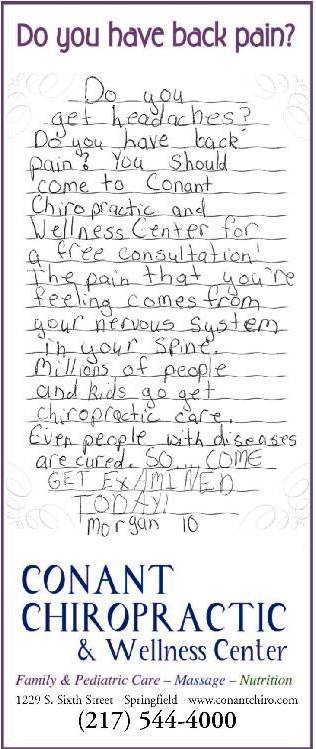 Do you have back pain?
Do you
get headaches?
Do you have back
pain? You Should
come to Conant
Chiropractic and
Wellness Center for
a free consultation!
The pain that you're
feeling comes from
your nervous system
in your spine.
Millions of people
and kids go get
chiropractic care.
Even people with diseases
are cured. SO... COME
GET EXAMINED
TODAY!
Morgan 10
CONANT
CHIROPRACTIC
& Wellness Center
Family & Pediatric Care – Massage – Nutrition
1229 S. Sixth Street - Springfield - www.conantchiro.com
(217) 544-4000